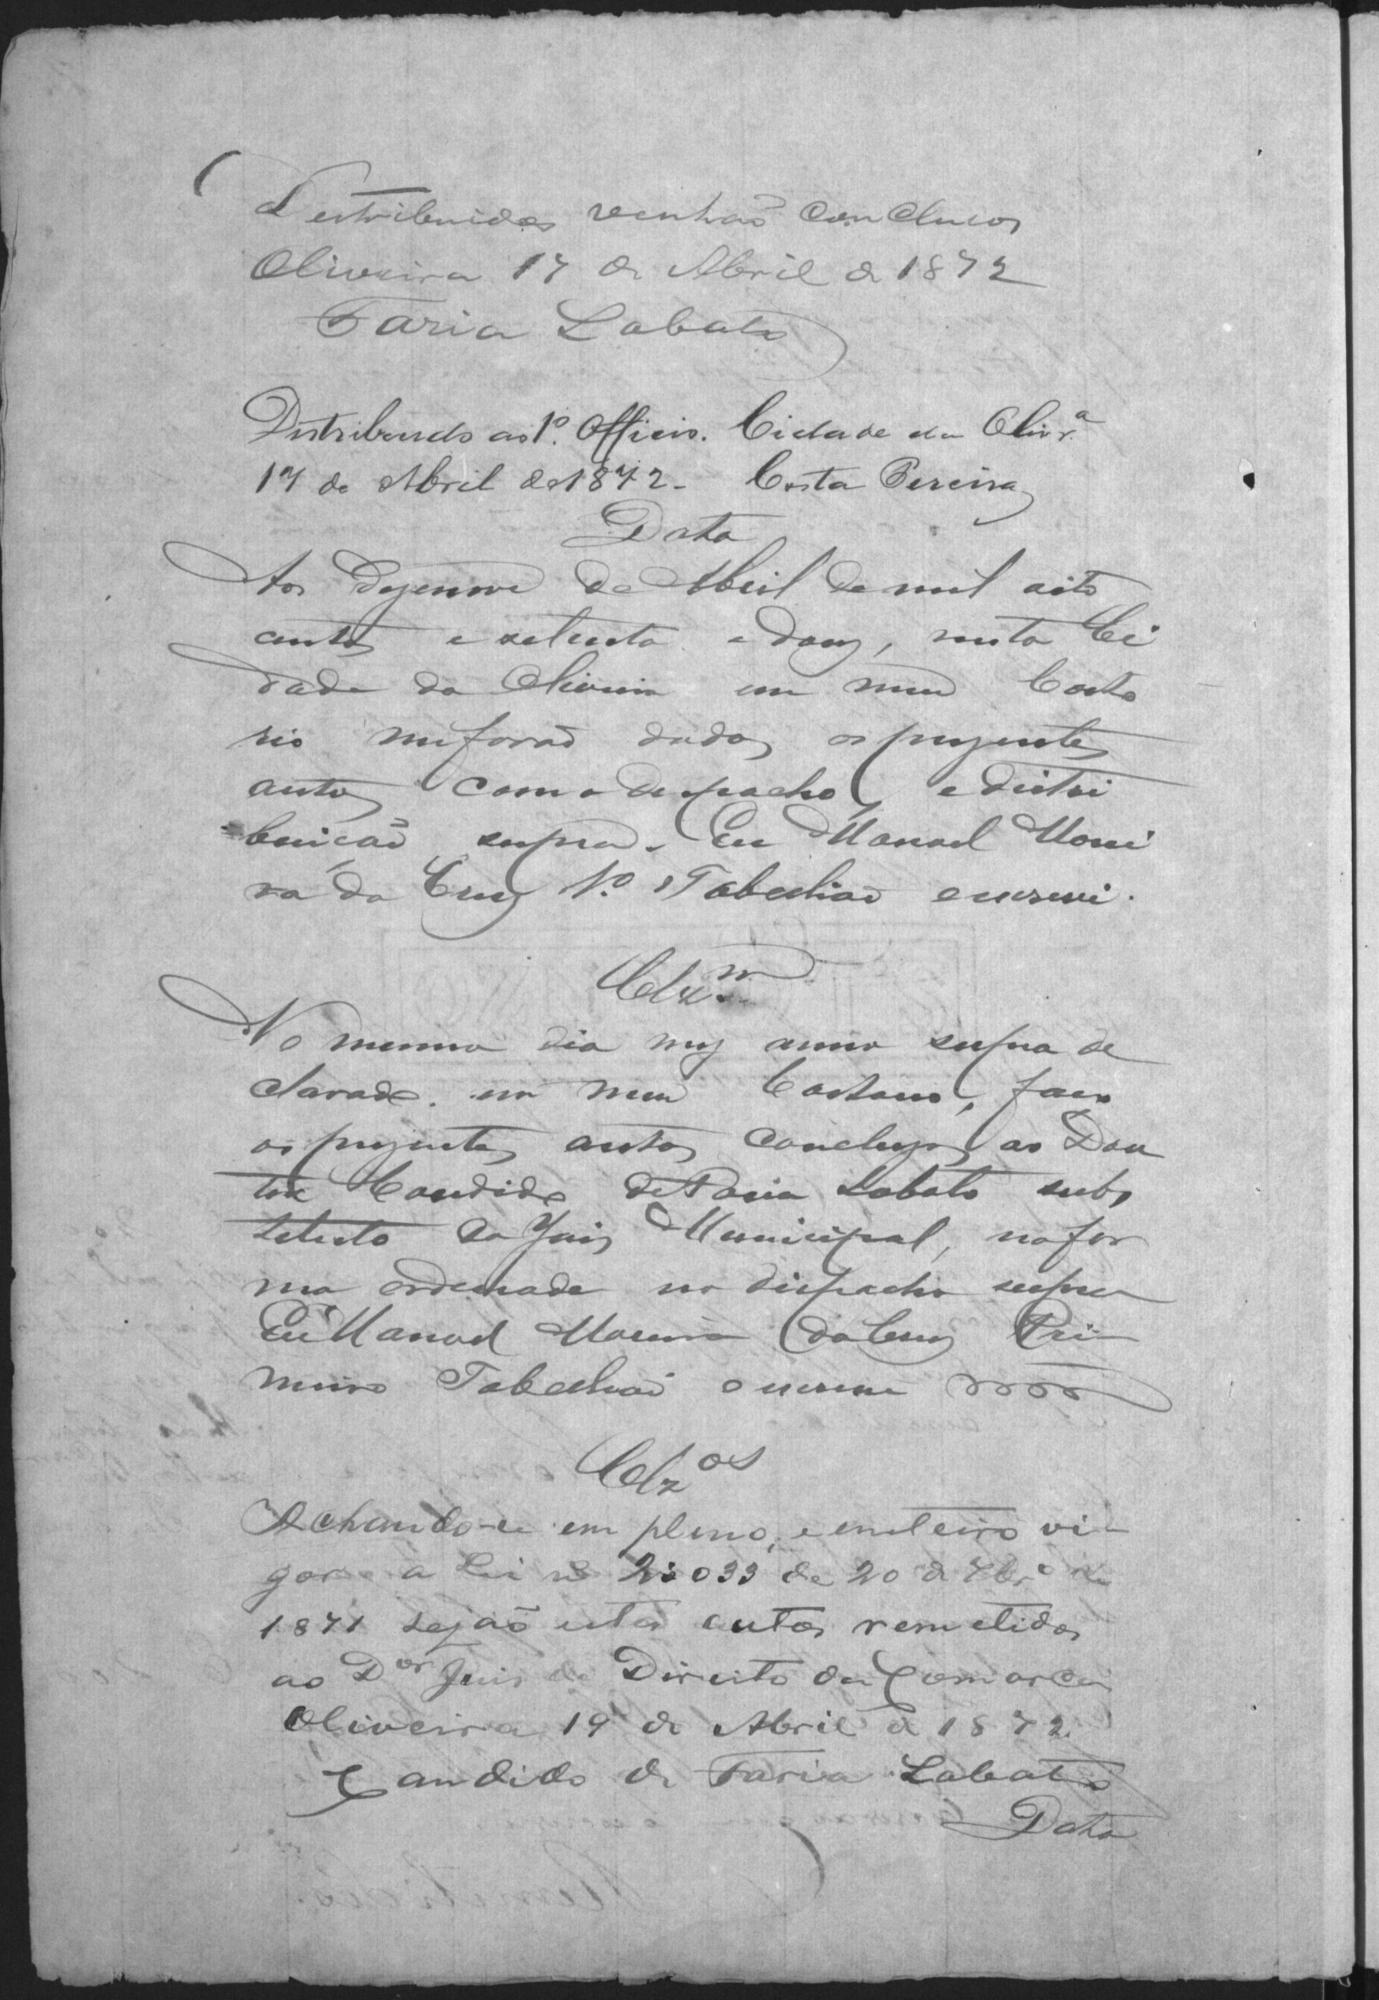 Destribuidos venhão Conclusos
Oliveira 17 de Abril de 1872
Faria Lobato
Distribuido ao 1º. Officio. Cidade da Olivrª
17 de Abril de 1872. Costa Pereira
Data
Aos Dezenove de Abril de mil oito
centos e setenta e dous, nesta Ci
dade da Oliveira em meu Carto
rio me forão dados os prezentes
autos com o despacho, e distri
buição supra. Eu Manoel Morei
ra da Cruz 1º. Tabelião escrevi.
Clzm
No mesmo dia mez anno supra de
clarado em meu Cartorio, faço
os prezentes autos conclusos ao Dou
tor Candido de Faria Lobato subs
tituto do Juiz Municipal, na for
ma ordenada no dispacho supra
Eu Manoel Moreira da Cruz Pri
meiro Tabelião o escrevi
Clzos
Achando-se em pleno, e inteiro vi
gor a Lei nº 2:033 de 20 de 7brº de
1871 sejão estes autos remetidos
ao Dor Juis de Direito da Comarca
Oliveira 19 de Abril de 1872
Candido de Faria Lobato
Data